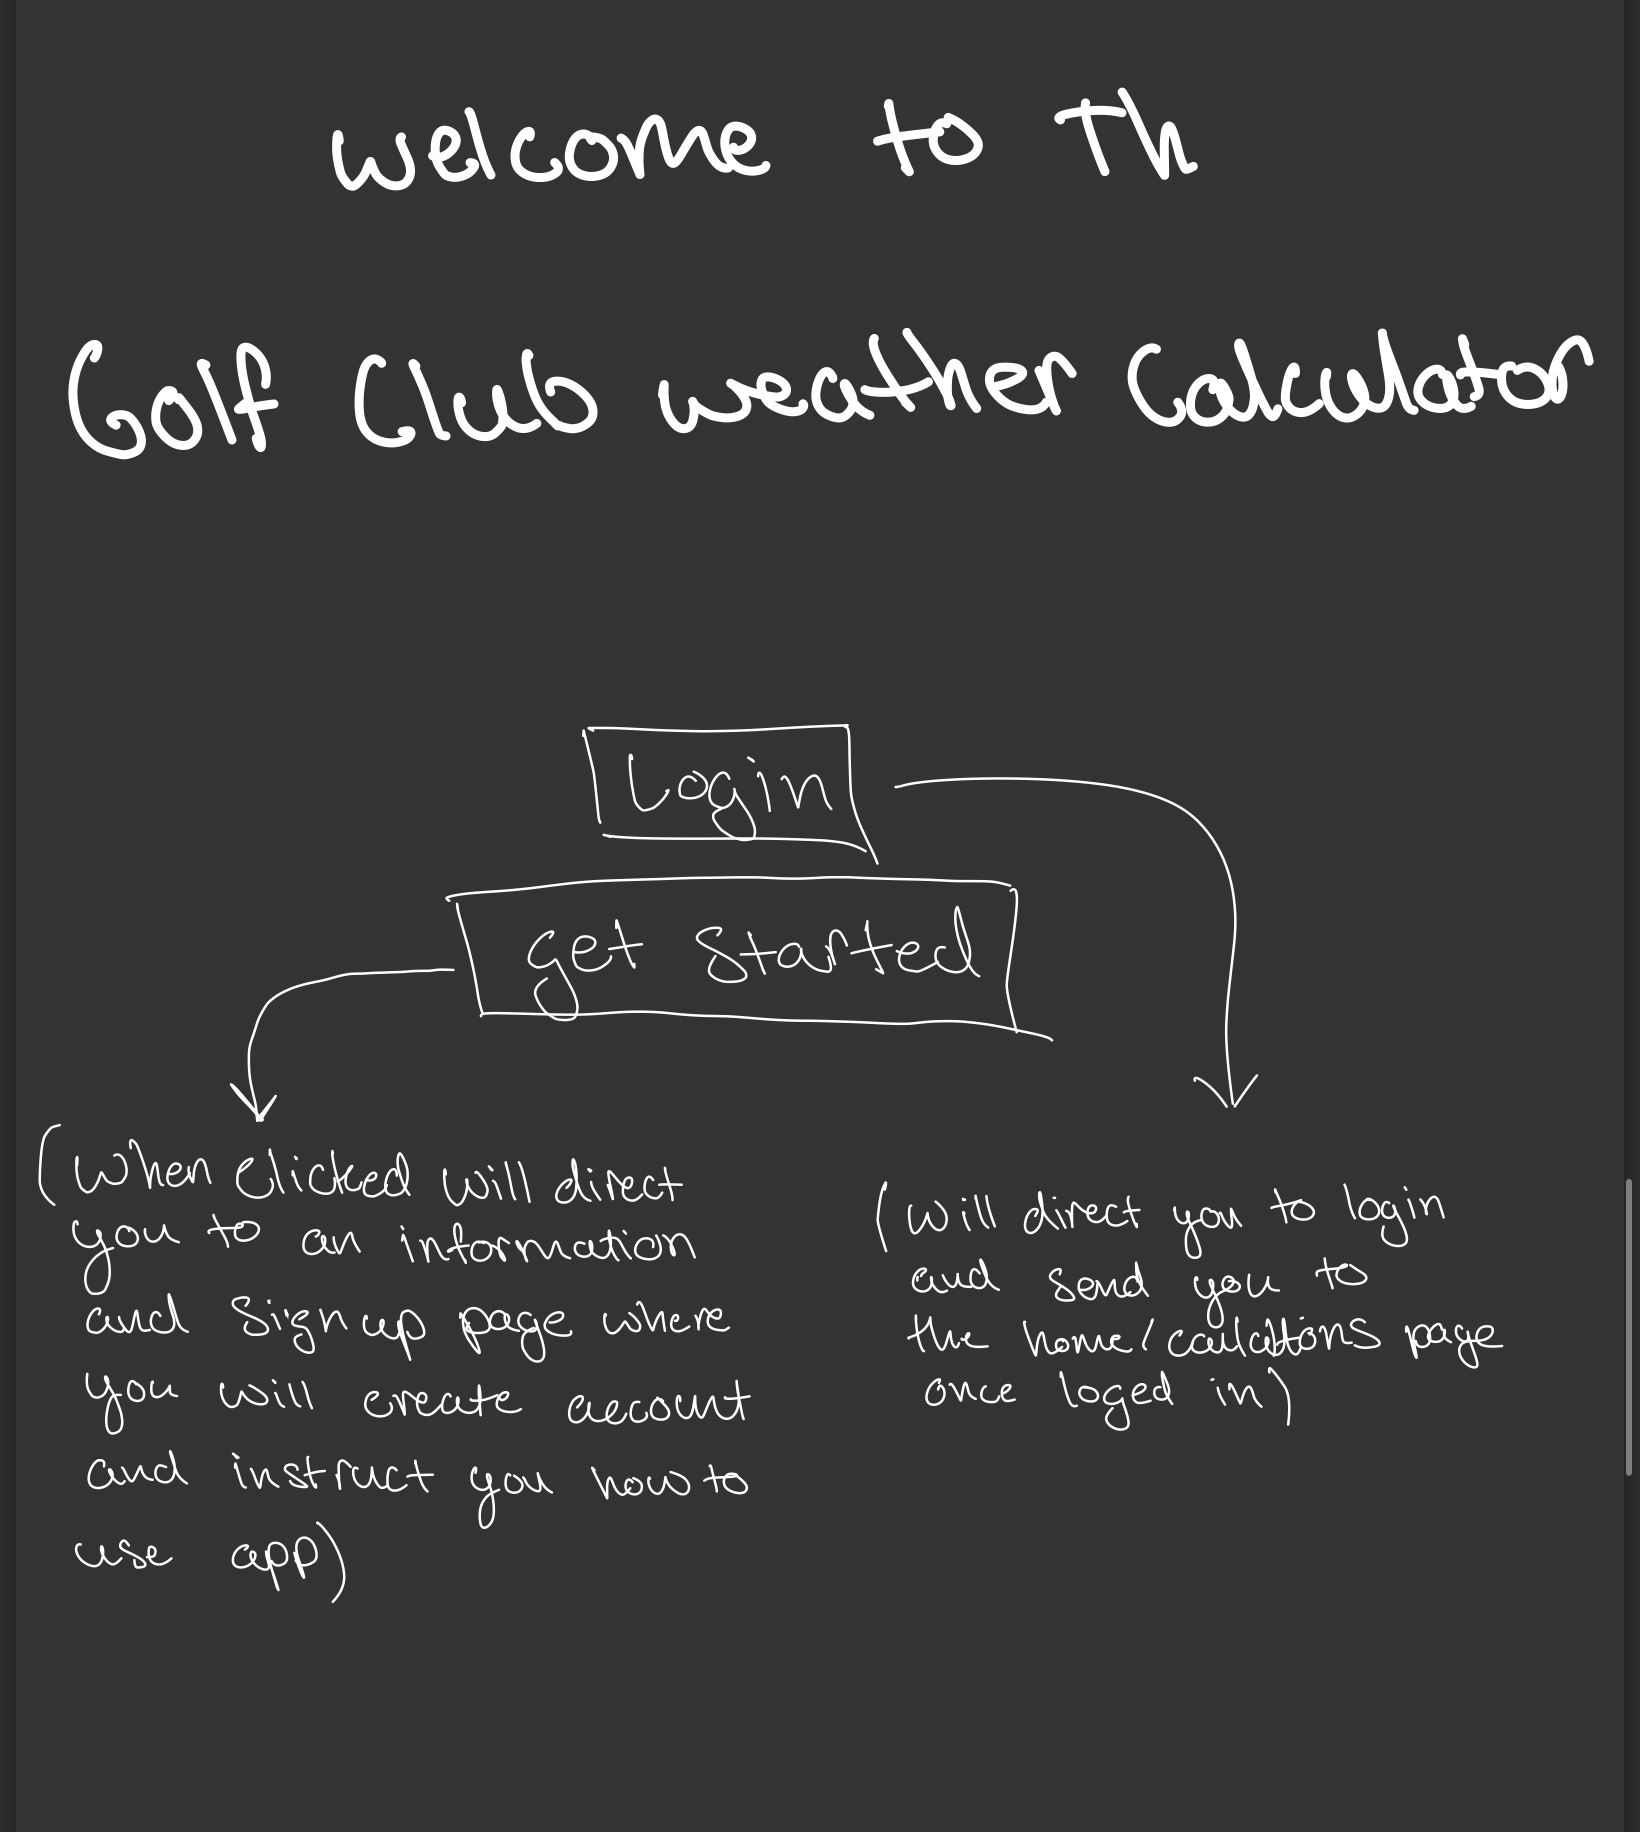 welcome to Th
Golf Club weather Calculator
Login
get started
(When clicked will direct
you to an information
and Sign up page where
you will create account
and instruct you how to
use app)
(will direct you to login
and send you to
the home/ page
once loged in)